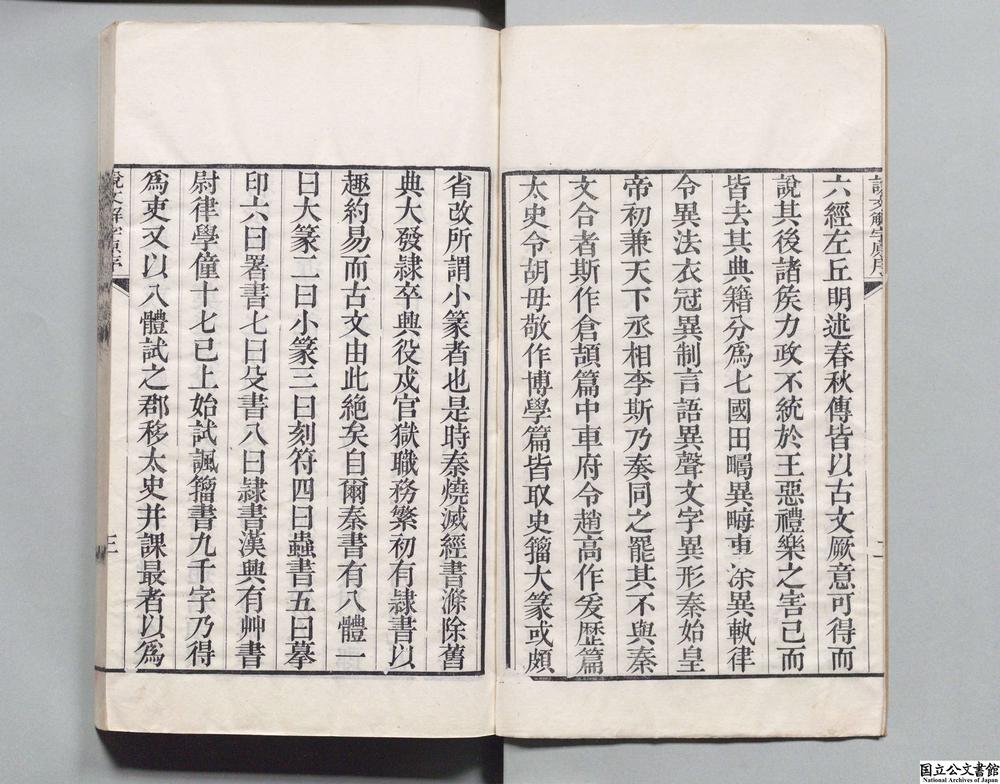 六經左丘明述春秋傳皆以古文厥意可得而
說其後諸矦力政不統於王惡禮樂之害己而
皆去其典籍分爲七國田疇異畮車涂異軌律
令異法衣冠異制言語異聲文字異形秦始皇
帝初兼天下丞相李斯乃奏同之罷其不與秦
文合者斯作倉頡篇中車府令趙高作爰歷篇
太史令胡毋敬作博學篇皆取史籀大篆或頗
省改所謂小篆者也是時秦燒滅經書滌除舊
典大發隸卒興役戍官獄職務繁初有隸書以
趣約易而古文由此絕矣自爾秦書有八體一
曰大篆二曰小篆三曰刻符四曰蟲書五曰摹
印六曰署書七曰殳書八曰隸書漢興有艸書
尉律學僮十七已上始試諷籀書九千字乃得
爲吏又以八體試之郡移太史并課最者以爲
說文解字原序
二
說文解字原序
三
国立公文書館
National Archives of Japan